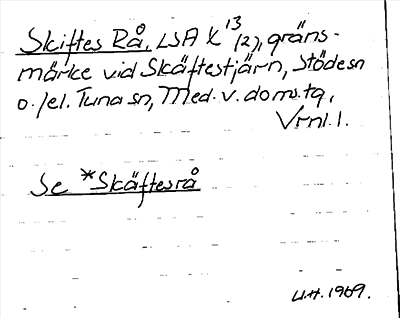 Skiftes Rå, LSA X 13/(2), gräns-
märke vid Skäftestjärn, Stödesn
o./el. Tuna sn, Med. v. doms.tg,
Vrnl. 1.
Se *Skäftesrå
U.H. 1969.